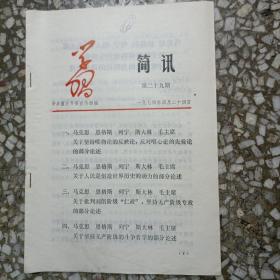 学习
简讯
第二十九期
一九七四年四月二十四日
一、马克思 恩格斯 列宁 斯大林 毛主席
关于坚持唯物论的反映论，反对唯心论的先验论
的部分论述
二、马克思 恩格斯 列宁 斯大林 毛主席
关于人民是创造世界历史的动力的部分论述
三、马克思 恩格斯 列宁 斯大林 毛主席
关于批判剥削阶级“仁政”，坚持无产阶级专
政的部分论述
四、马克思 恩格斯 列宁 斯大林 毛主席
关于坚持无产阶级的斗争哲学的部分论述